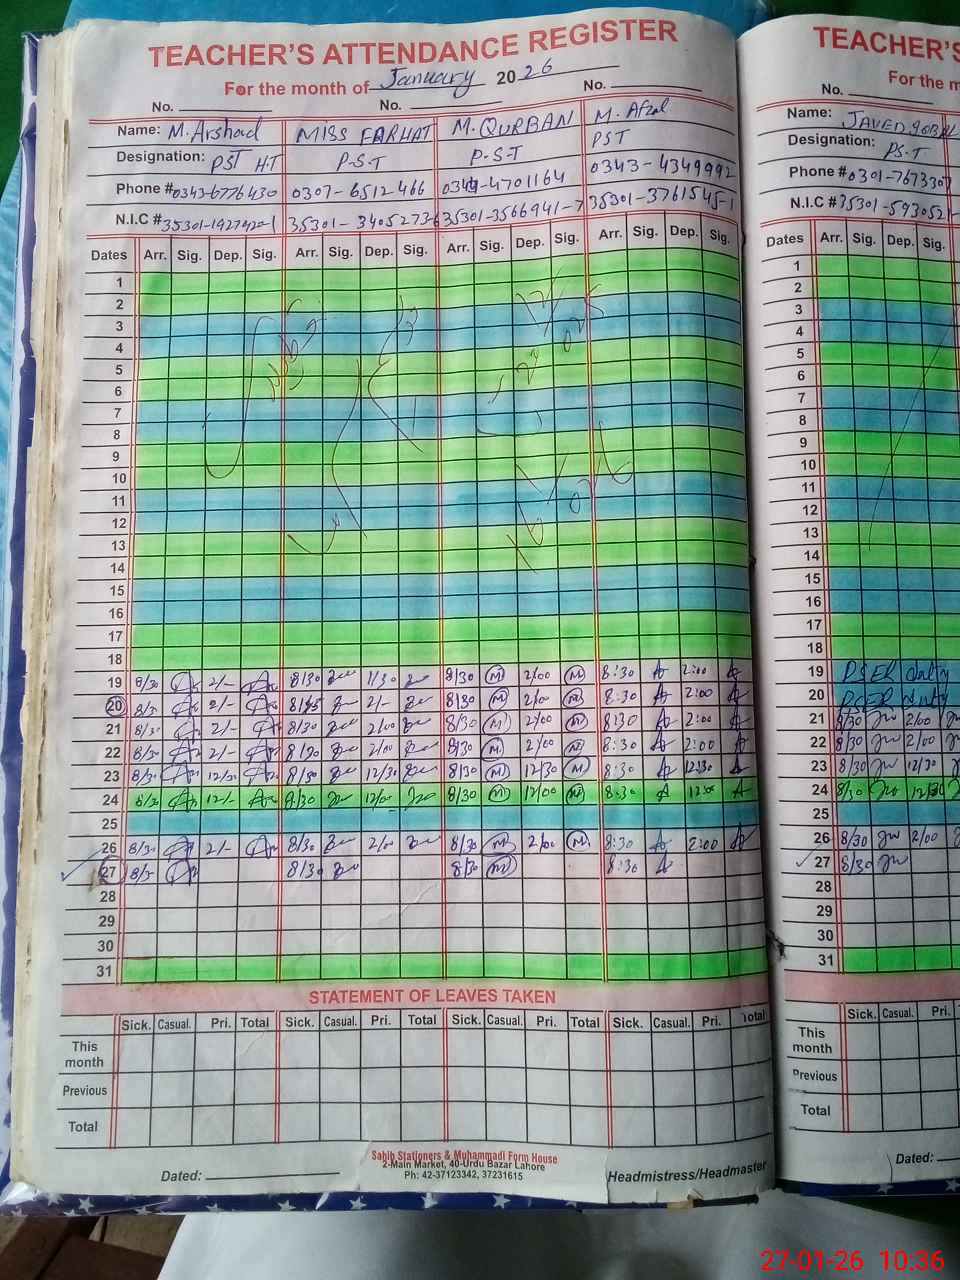 TEACHER'S ATTENDANCE REGISTER
For the month of January 2026
No. No. No.
Name: M. Arshad MISS FARHAT M. QURBAN M. Afzal
Designation: PST HT P-S-T P-S-T PST
Phone # 0343-6776430 0307-6512466 0344-4701164 0343-4349992
N.I.C # 35301-1927920-1 35301-3405273-6 35301-3566941-7 35301-3761545-1
Dates Arr. Sig. Dep. Sig. Arr. Sig. Dep. Sig. Arr. Sig. Dep. Sig. Arr. Sig. Dep. Sig.
1
2
3
4
5
6
7
8
9
10
11
12
13
14
15
16
17
18
19 8/30 2/- 8/30 1/30 8/30 M 2/00 M 8:30 A 2:00 A
20 8/30 2/- 8/45 2/- 8/30 M 2/00 M 8:30 A 2:00 A
21 8/30 2/- 8/30 2/00 8/30 M 2/00 M 8:30 A 2:00 A
22 8/30 2/- 8/30 2/00 8/30 M 2/00 M 8:30 A 2:00 A
23 8/30 12/30 8/30 12/30 8/30 M 12/30 M 8:30 A 12:30 A
24 8/30 12/- 8/30 12/00 8/30 M 12/00 M 8:30 A 12:00 A
25
26 8/30 2/- 8/30 2/00 8/30 M 2/00 M 8:30 A 2:00 A
27 8/30 8/30 8/30 M 8:30 A
28
29
30
31
STATEMENT OF LEAVES TAKEN
Sick. Casual. Pri. Total Sick. Casual. Pri. Total Sick. Casual. Pri. Total Sick. Casual. Pri. Total
This month
Previous
Total
Sahib Stationers & Muhammadi Form House
2-Main Market, 40-Urdu Bazar Lahore
Ph: 42-37123342, 37231615
Dated: Headmistress/Headmaster
TEACHER'S
For the m
No.
Name: JAVED IQBAL
Designation: PS-T
Phone # 0301-767330
N.I.C # 35301-593052
Dates Arr. Sig. Dep. Sig.
1
2
3
4
5
6
7
8
9
10
11
12
13
14
15
16
17
18
19 PSER duty
20 PSER duty
21 8/30 2/00
22 8/30 2/00
23 8/30 12/30
24 8/30 12/30
25
26 8/30 2/00
27 8/30
28
29
30
31
Sick. Casual. Pri.
This month
Previous
Total
Dated:
27-01-26 10:36